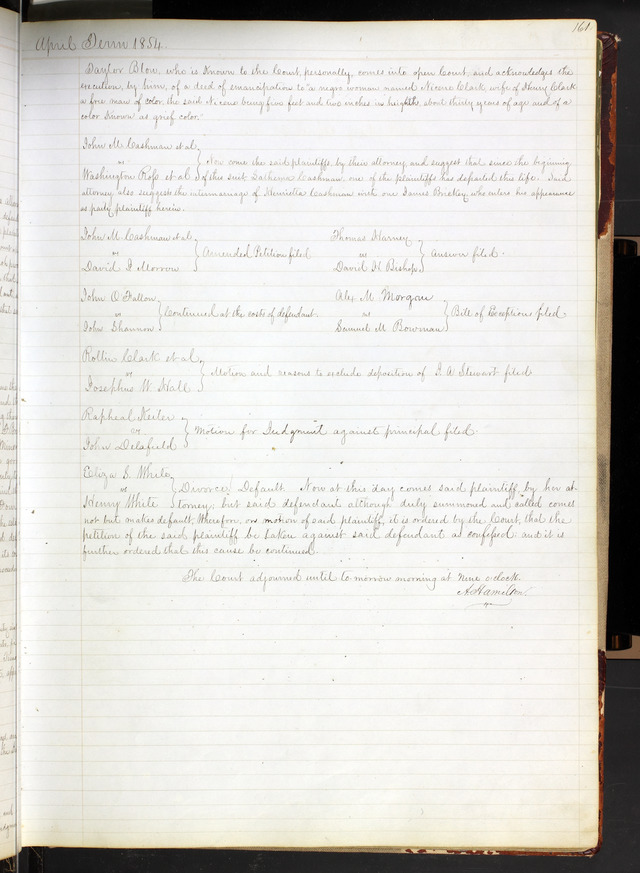 161
April Term 1854.
Taylor Blow, who is known to the Court, personally, comes into open Court, and acknowledges the
execution, by him, of a deed of emancipation to a negro woman named Nicene Clark, wife of Henry Clark
a free man of color, the said Nicene being five feet and two inches in heighth, about thirty years of age and of a
color known as grief color.
John M. Cashman et al
vs
Washington Ross et al
Now come the said plaintiffs by their attorney, and suggest that since the beginning
of this suit Catherine Cashman, one of the plaintiffs has departed this life. Said
attorney also suggests the intermarriage of Henrietta Cashman with one James Brickey, who enters his appearance
as party plaintiff herein.
John M. Cashman et al
vs
David J Morrow
Amended Petition filed
Thomas Harney
vs
David H Bishop
Answer filed.
John O'Fallon
vs
John Shannon
Continued at the costs of defendant.
Alex M. Morgan
vs
Samuel M Bowman
Bill of Exception filed
Rollin Clark et al
vs
Josephus W. Hall
Motion and reasons to exclude deposition of J. A Stewart filed
Rapheal Keiler
vs
John Delafield
Motion for Judgment against principal filed.
Eliza S. White
vs
Henry White
Divorce, Default. Now at this day comes said plaintiff, by her at-
torney; but said defendant although duly summoned and called comes
not but makes default, Wherefore, on motion of said plaintiff, it is ordered by the Court, that the
petition of the said plaintiff be taken against said defendant as confessed and it is
further ordered that this cause be continued.
The Court adjourned until to morrow morning at nine o'clock.
A. Hamilton